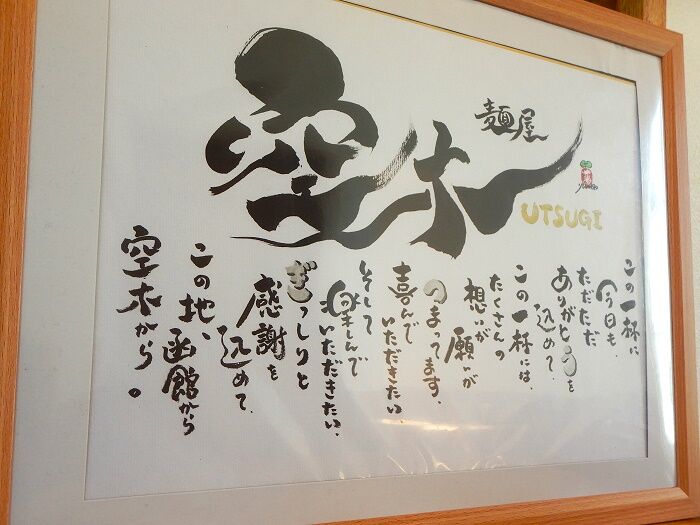 麺屋
空木
UTSUGI
この一杯に
今日も、
ただただ
ありがとうを
込めて。
この一杯には、
たくさんの
想いが
願いが
つまってます。
喜んで
いただきたい
そして
楽しんで
いただきたい、
ぎっしりと
感謝を
込めて
この地、
函館から
空木から。